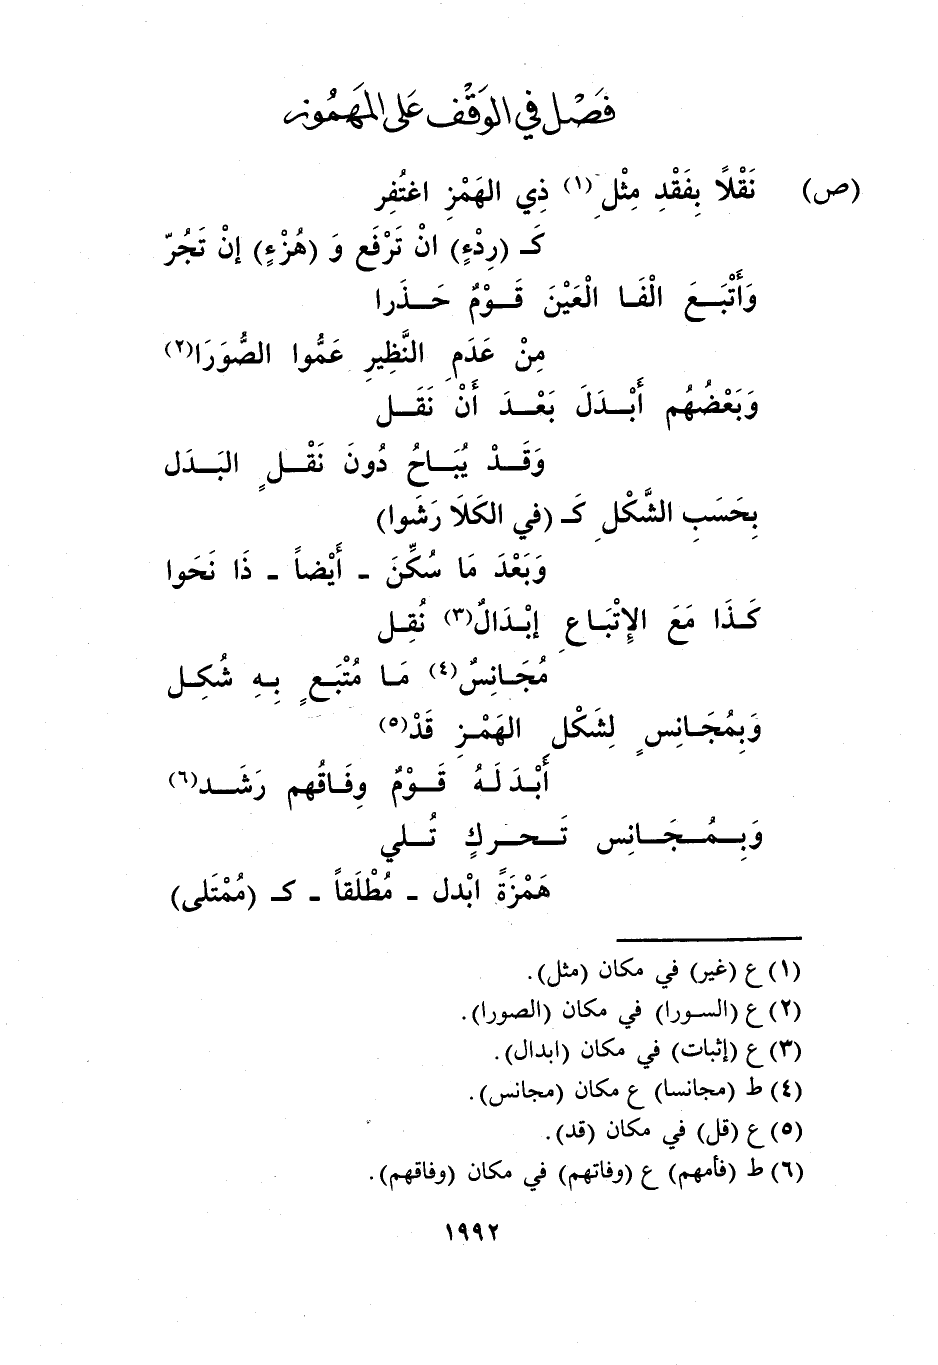 فَصْل في الوَقْف عَلى المَهمُوز
(ص) نَقْلًا بِفَقْدِ مِثْلِ(١) ذِي الهَمْزِ اغتُفِر
كَـ (رِدْءٍ) انْ تَرْفَع وَ (هُزْءٍ) إنْ تَجُرّ
وَأَتْبَـعَ الْفَـا الْعَيْنَ قَـوْمٌ حَـذَرا
مِنْ عَدَمِ النَّظِيرِ عَمُّوا الصُّوَرَا(٢)
وَبَعْضُهُم أَبْـدَلَ بَعْـدَ أَنْ نَقَـل
وَقَـدْ يُبَـاحُ دُونَ نَقْـلٍ البَـدَل
بِحَسَبِ الشَّكْلِ كَـ (في الكَلَا رَشَوا)
وَبَعْدَ مَا سُكِّنَ - أَيْضاً - ذَا نَحَوا
كَـذَا مَعَ الإِتْبَـاعِ إبْـدَالٌ(٣) نُقِـل
مُجَـانِسٌ(٤) مَـا مُتْبَـعٍ بِـهِ شُكِـل
وَبِمُجَـانِسٍ لِشَكْلِ الهَمْـزِ قَدْ(٥)
أَبْـدَلَـهُ قَـوْمٌ وِفَـاقُهم رَشَـد(٦)
وَبِـمُـجَـانِس تَـحـركٍ تُـلي
هَمْزَةً ابْدل - مُطْلَقاً - كـ (مُمْتَلى)
(١) ع (غير) في مكان (مثل).
(٢) ع (السـورا) في مكان (الصورا).
(٣) ع (إثبات) في مكان (ابدال).
(٤) ط (مجانسا) ع مكان (مجانس).
(٥) ع (قل) في مكان (قد).
(٦) ط (فأمهم) ع (وفاتهم) في مكان (وفاقهم).
١٩٩٢